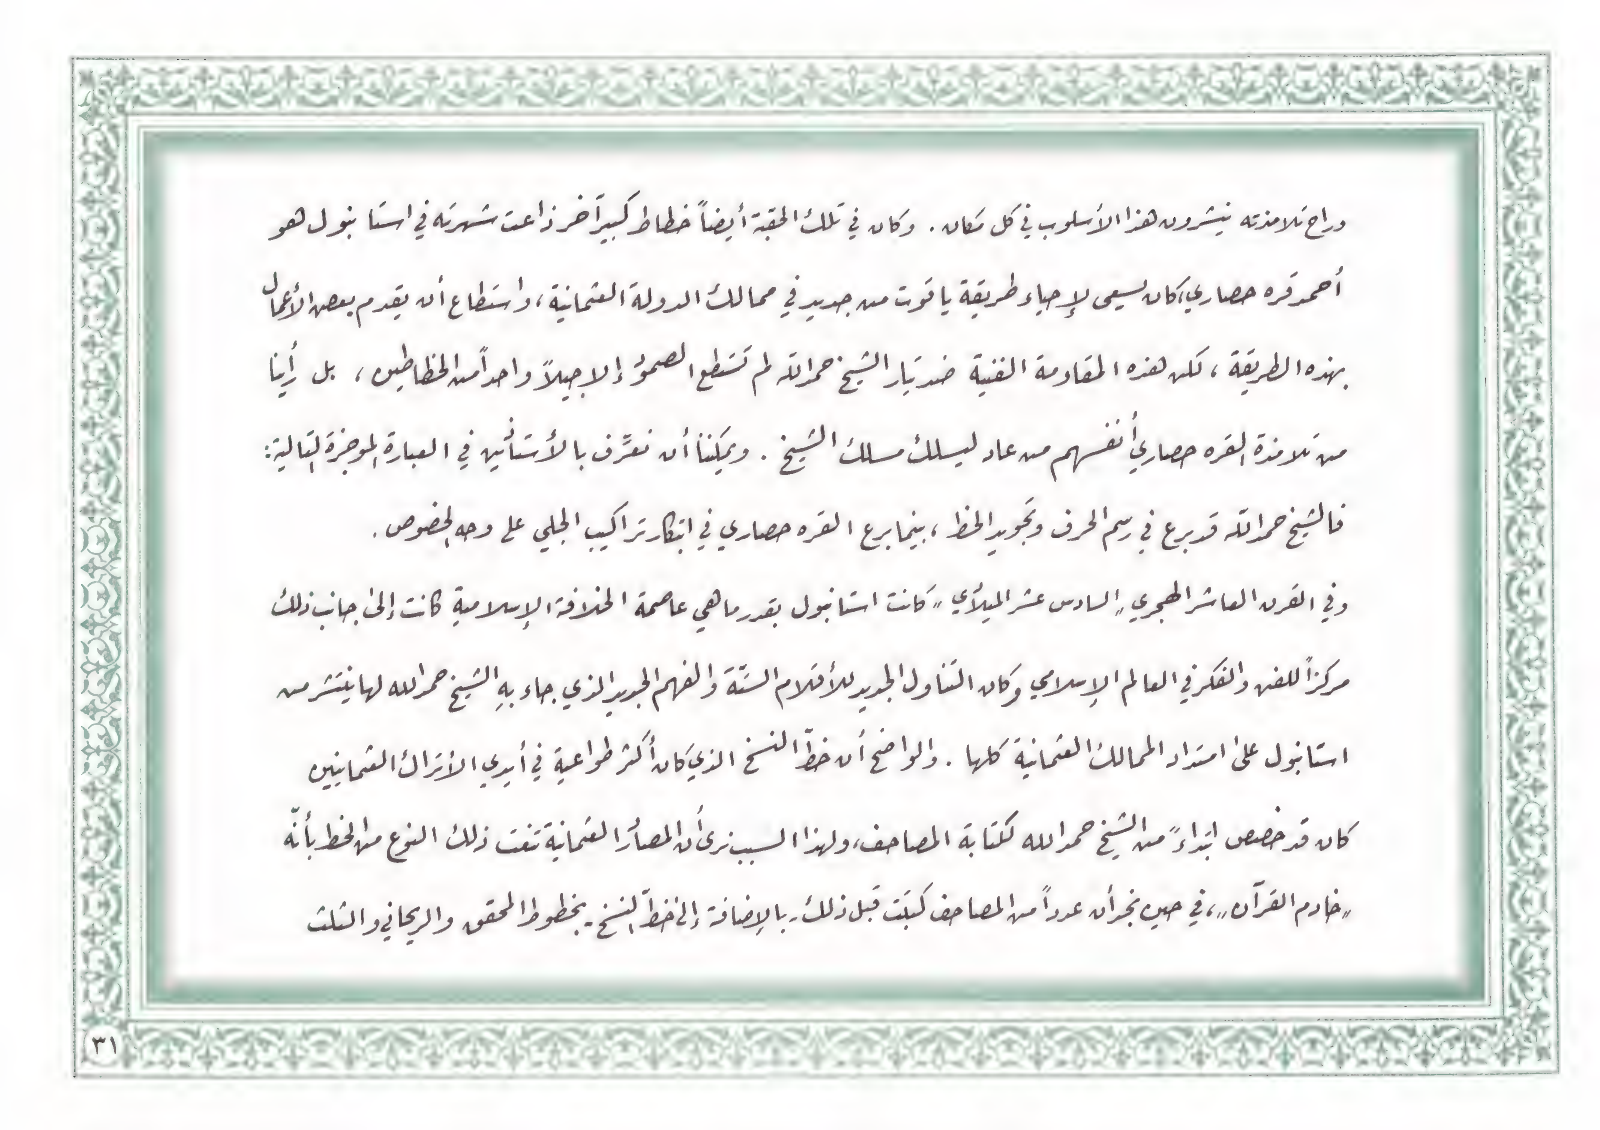 وراح تلامذته ينشرون هذا الأسلوب في كل مكان . وكان في تلك الحقبة أيضاً خطاط كبير آخر ذاعت شهرته في استانبول هو
أحمد قره حصاري، كان يسعى لإحياء طريقة ياقوت من جديد في ممالك الدولة العثمانية ، واستطاع أن يقدم بعض الأعمال
بهذه الطريقة ، لكن هذه المقاومة الفنية ضد تيار الشيخ حمد الله لم تستطع الصمود إلا جيلاً واحداً من الخطاطين ، بل رأينا
من تلامذة القره حصاري أنفسهم من عاد ليسلك مسلك الشيخ . ويمكننا أن نعرّف بالأستاذين في العبارة الموجزة التالية :
فالشيخ حمد الله قد برع في رسم الحرف وتجويد الخط ، بينما برع القره حصاري في ابتكار تراكيب الجلي على وجه الخصوص .
وفي القرن العاشر الهجري "السادس عشر الميلادي" كانت استانبول بقدر ما هي عاصمة الخلافة الإسلامية كانت إلى جانب ذلك
مركزاً للفن والفكر في العالم الإسلامي وكان التناول الجديد للأقلام الستّة والفهم الجديد الذي جاء به الشيخ حمد الله لها ينتشر من
استانبول على امتداد الممالك العثمانية كلها . والواضح أن خطّ النسخ الذي كان أكثر طواعية في أيدي الأتراك العثمانيين
كان قد خصص ابتداءً من الشيخ حمد الله لكتابة المصاحف، ولهذا السبب نرى أن المصادر العثمانية تنعت ذلك النوع من الخط بأنّه
"خادم القرآن"، في حين نجد أن عدداً من المصاحف كتبت قبل ذلك - بالإضافة إلى خطّ النسخ - بخطوط المحقق والريحاني والثلث
٣١